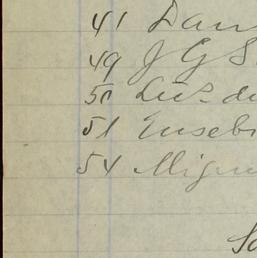 41 Dan
49 J G S
50 Luis de
51 Eusebi
54 Migu
Sa